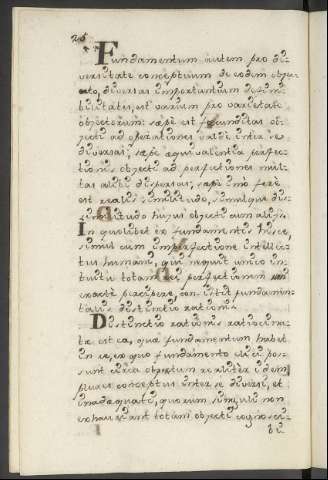 26
Fundamentum autem pro di-
versitate conceptuum de eodem obje-
cto, diversas importantium definí-
bilitates, est varium pro varietate
objectorum: sæpe est fecunditas ob-
jecti ad operationes valde inter se
diversas; sæpe æquivalentia perfec-
tionis objecti ad perfectiones mul-
tas alibi dispersas; sæpe imo fere
est realis similitudo, simulque dis-
similitudo hujus objecti cum aliis.
In quolibet ex fundamentis hisce,
simul cum imperfectione intellec-
tus humani, qui nequit unico in-
tuitu totam rei perfectionem
exacte percipere, consistit fundamen-
talis distinctio rationis.
Distinctio rationis ratiocina-
tæ est ea, quæ fundamentum habet
in re, ex quo fundamento elici pos-
sunt circa objectum realiter idem
plures conceptus inter se diversi, et
inadæquati, quorum singuli non
exhauriant totam objecti cognosci-
bi-